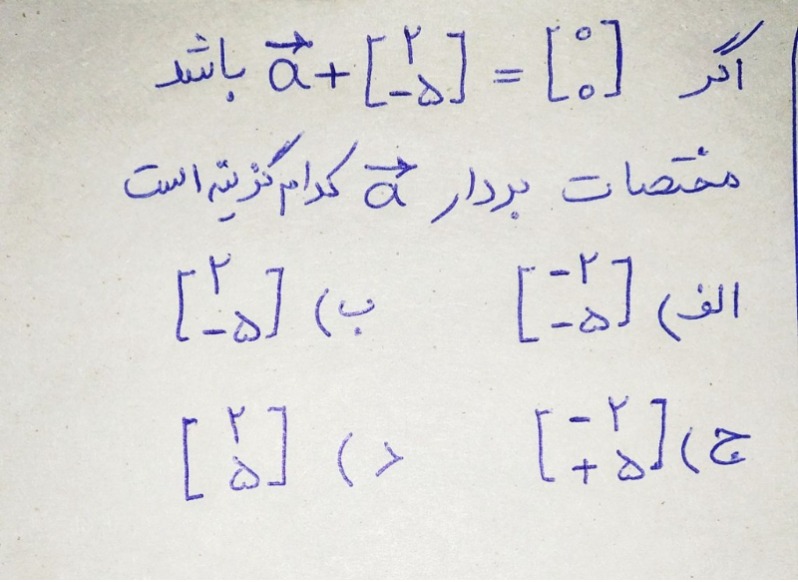 اگر a⃗ + [۲ -۵] = [۰ ۰] باشد
مختصات بردار a⃗ کدام گزینه است
الف) [-۲ -۵] ب) [۲ -۵]
ج) [-۲ +۵] د) [۲ ۵]